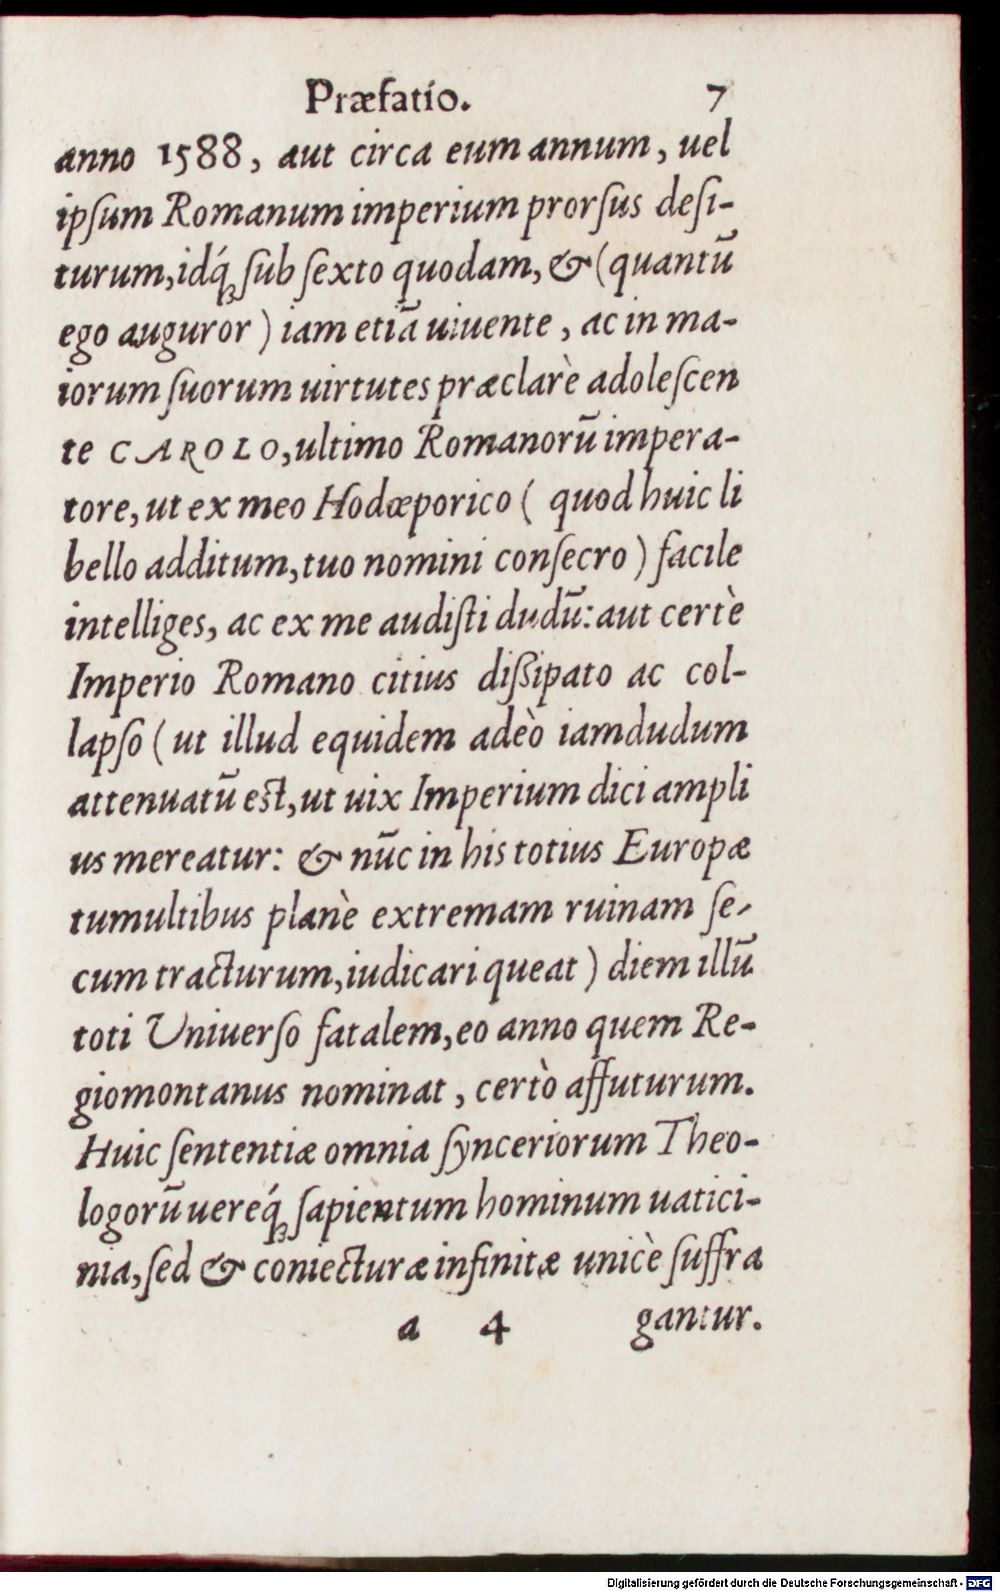 Præfatio. 7
anno 1588, aut circa eum annum, uel
ipſum Romanum imperium prorſus deſi-
turum, idq́ꝫ ſub ſexto quodam, & (quantū
ego auguror) iam etiā uiuente, ac in ma-
iorum ſuorum uirtutes præclarè adoleſcen
te CAROLO, ultimo Romanorū impera-
tore, ut ex meo Hodæporico ( quod huic li
bello additum, tuo nomini conſecro) facile
intelliges, ac ex me audiſti dudū: aut certè
Imperio Romano citius diſſipato ac col-
lapſo (ut illud equidem adeò iamdudum
attenuatū est, ut uix Imperium dici ampli
us mereatur: & nūc in his totius Europæ
tumultibus planè extremam ruinam ſe-
cum tracturum, iudicari queat) diem illū
toti Uniuerſo fatalem, eo anno quem Re-
giomontanus nominat, certò affuturum.
Huic ſententiæ omnia ſynceriorum Theo-
logorū uereq́ꝫ ſapientum hominum uatici-
nia, ſed & coniecturæ infinitæ unicè ſuffra
a 4 gantur.
Digitalisierung gefördert durch die Deutsche Forschungsgemeinschaft - DFG